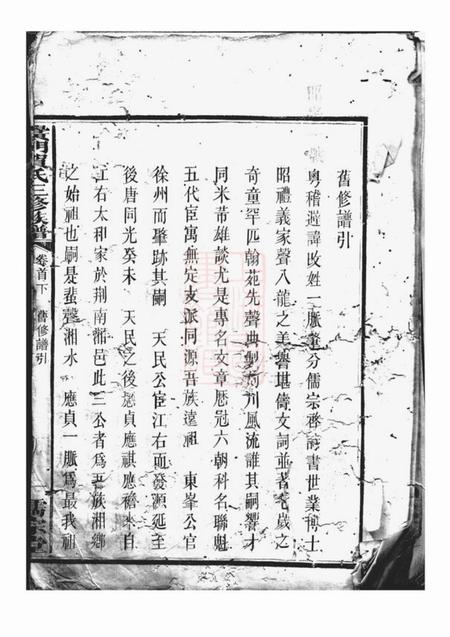 舊修譜引
粵稽避諱改姓一脈羣分儒宗齊詩書世業博士
昭禮義家聲八龍之美譽堪儔文詞並著七歲之
奇童罕匹翰苑先聲典型川風流誰其嗣響才
同米芾雄談尤是專名文章歷冠六朝科名聯魁
五代宦寓無定支派同源吾族遠祖 東峯公官
徐州而肇跡其嗣 天民公宦江右而發源延至
後唐同光癸未 天民之後應貞應祺應禧來自
江右太和家於荆南湘邑此三公者為吾族湘鄉
之始祖也嗣是蜚聲湘水 應貞一脈為最我祖
氏三修族譜
卷首下
舊修譜引